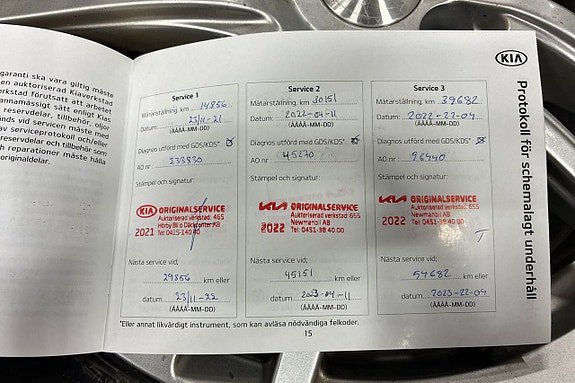 garanti ska vara giltig måste
en auktoriserad Kiaverkstad
erkstad förutsatt att arbetet
annamässigt sätt enligt Kias
reservdelar, tillbehör, oljor
nds vid servicen måste med
v serviceprotokoll och/eller
servdelar och tillbehör som
h reparationer måste hålla
originaldelar.
KIA
Protokoll för schemalagt underhåll
Service 1
Mätarställning, km 14856
Datum: 23/11-21
(ÅÅÅÅ-MM-DD)
Diagnos utförd med GDS/KDS*
AO nr 233830
Stämpel och signatur:
KIA ORIGINALSERVICE
Auktoriserad verkstad: 465
Hobby Bil o Däckcenter AB
2021 Tel: 0415-140 40
Nästa service vid;
29856 km eller
datum 23/11-22
(ÅÅÅÅ-MM-DD)
Service 2
Mätarställning, km 30151
Datum: 2022-04-11
(ÅÅÅÅ-MM-DD)
Diagnos utförd med GDS/KDS*
AO nr 45270
Stämpel och signatur:
KIA ORIGINALSERVICE
Auktoriserad verkstad: 655
Newmanbil AB
2022 Tel: 0451-38 40 00
Nästa service vid;
45151 km eller
datum 2023-04-11
(ÅÅÅÅ-MM-DD)
Service 3
Mätarställning, km 39682
Datum: 2022-22-09
(ÅÅÅÅ-MM-DD)
Diagnos utförd med GDS/KDS*
AO nr
Stämpel och signatur:
KIA ORIGINALSERVICE
Auktoriserad verkstad: 655
Newmanbil AB
2022 Tel: 0451-38 40 00
Nästa service vid;
54682 km eller
datum 2023-22-09
(ÅÅÅÅ-MM-DD)
*Eller annat likvärdigt instrument, som kan avläsa nödvändiga felkoder.
15